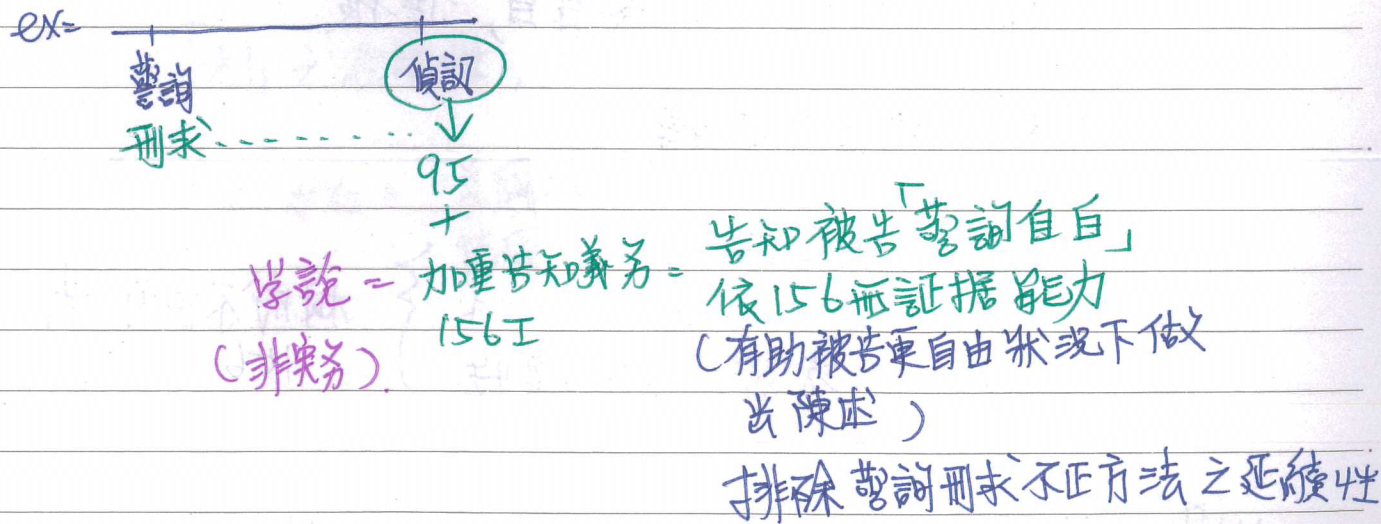 ex=
警詢 偵訊
刑求.........
95
+
学說 = 加重告知義务 = 告知被告「警詢自白」
156I 依156無証据能力
(非実务) (有助被告更自由狀況下做
出陳述)
排除警詢刑求不正方法之延續性